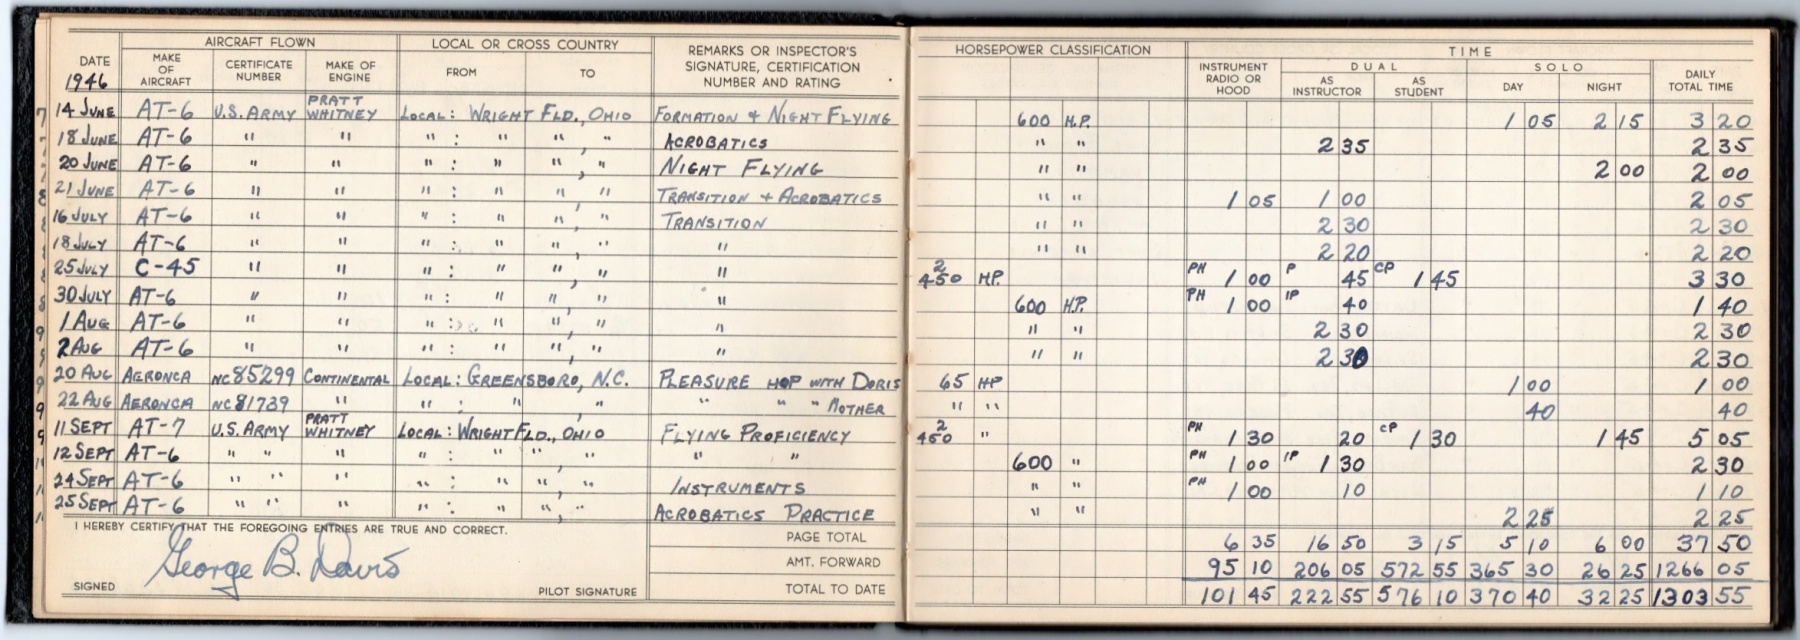 AIRCRAFT FLOWN LOCAL OR CROSS COUNTRY REMARKS OR INSPECTOR'S SIGNATURE, CERTIFICATION NUMBER AND RATING HORSEPOWER CLASSIFICATION TIME
DATE 1946 MAKE OF AIRCRAFT CERTIFICATE NUMBER MAKE OF ENGINE FROM TO INSTRUMENT RADIO OR HOOD DUAL AS INSTRUCTOR AS STUDENT SOLO DAY NIGHT DAILY TOTAL TIME
14 JUNE AT-6 U.S. ARMY PRATT WHITNEY LOCAL: WRIGHT FLD., OHIO FORMATION + NIGHT FLYING 600 H.P. 1 05 2 15 3 20
18 JUNE AT-6 " " " : " " , " ACROBATICS " " 2 35 2 35
20 JUNE AT-6 " " " : " " , " NIGHT FLYING " " 2 00 2 00
21 JUNE AT-6 " " " : " " , " TRANSITION + ACROBATICS " " 1 05 1 00 2 05
16 JULY AT-6 " " " : " " , " TRANSITION " " 2 30 2 30
18 JULY AT-6 " " " : " " , " " " " 2 20 2 20
25 JULY C-45 " " " : " " , " " 2 450 H.P. PH 1 00 P 45 CP 1 45 3 30
30 JULY AT-6 " " " : " " , " " 600 H.P. PH 1 00 IP 40 1 40
1 AUG AT-6 " " " : " " , " " " " 2 30 2 30
2 AUG AT-6 " " " : " " , " " " " 2 30 2 30
20 AUG AERONCA NC85299 CONTINENTAL LOCAL: GREENSBORO, N.C. PLEASURE HOP WITH DORIS 65 HP 1 00 1 00
22 AUG AERONCA NC81739 " " : " , " " " " MOTHER " " 40 40
11 SEPT AT-7 U.S. ARMY PRATT WHITNEY LOCAL: WRIGHT FLD., OHIO FLYING PROFICIENCY 2 450 " PH 1 30 20 CP 1 30 1 45 5 05
12 SEPT AT-6 " " " " : " " , " " " 600 " PH 1 00 IP 1 30 2 30
24 SEPT AT-6 " " " " : " " , " INSTRUMENTS " " PH 1 00 10 1 10
25 SEPT AT-6 " " " " : " " , " ACROBATICS PRACTICE " " 2 25 2 25
I HEREBY CERTIFY THAT THE FOREGOING ENTRIES ARE TRUE AND CORRECT.
PAGE TOTAL 6 35 16 50 3 15 5 10 6 00 37 50
AMT. FORWARD 95 10 206 05 572 55 365 30 26 25 1266 05
George B. Davis
SIGNED PILOT SIGNATURE TOTAL TO DATE 101 45 222 55 576 10 370 40 32 25 1303 55